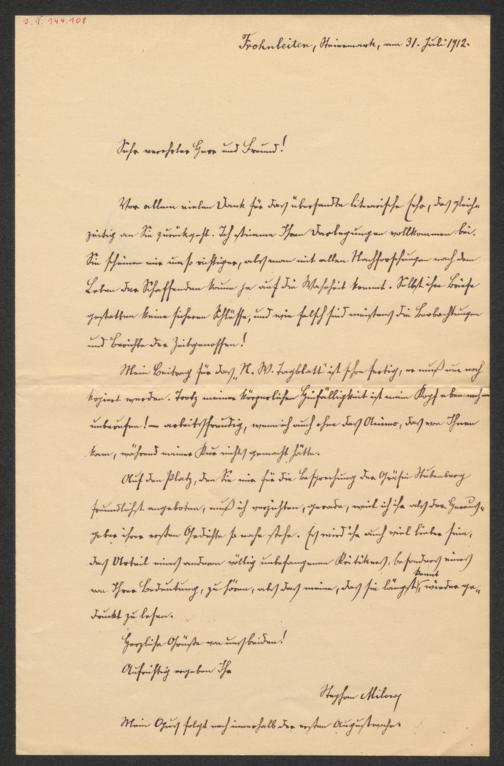 I.N. 144.108
Frohnleiten, Steiermark, am 31. Juli 1912.
Sehr verehrter Herr und Freund!
Vor allem vielen Dank für das übersandte literarische Echo, das gleich-
zeitig an Sie zurückgeht. Ich stimme Ihren Darlegungen vollkommen bei.
Sie scheinen mir umso richtiger, als man mit allen Nachforschungen nach dem
Leben des Schaffenden kaum je auf die Wahrheit kommt. Selbst ihre Briefe
gestatten keine sicheren Schlüsse, und wie falsch sind meistens die Beobachtungen
und Berichte der Zeitgenossen!
Mein Beitrag für das „N. W. Tagblatt" ist schon fertig, er muß nur noch
kopiert werden. Trotz meiner körperlichen Hinfälligkeit ist mein Kopf eben noch –
unberufen! – arbeitsfreudig, wenn ich auch ohne das Animo, das von Ihnen
kam, während meiner Kur nichts gemacht hätte.
Auf den Platz, den Sie mir für die Besprechung der Gräfin Stubenberg
freundlichst angeboten, muß ich verzichten, gerade, weil ich ihr als der Heraus-
geber ihrer ersten Gedichte so nahe stehe. Es wird ihr auch viel lieber sein,
das Urteil eines anderen völlig unbefangenen Kritikers, besonders eines
von Ihrer Bedeutung, zu hören, als das meine, das sie längst kennt, wieder ge-
druckt zu lesen.
Herzliche Grüße von uns beiden!
Aufrichtig ergeben Ihr
Stephan Milow
Mein Opus folgt noch innerhalb der ersten Augustwoche.